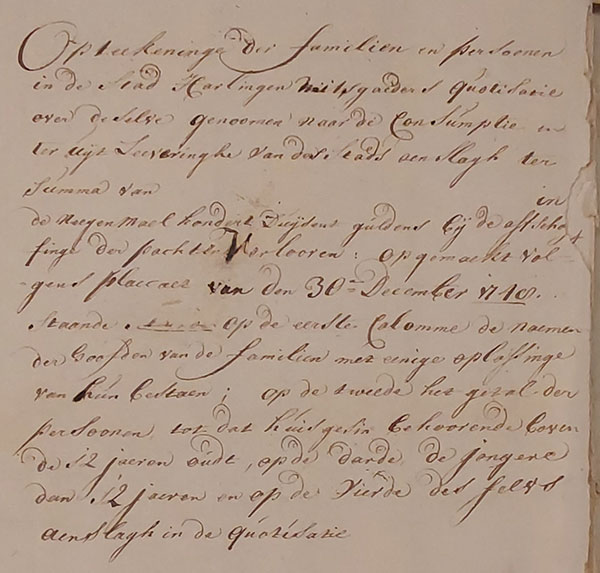 Opteekeninge der familien en persoonen
in de Stad Harlingen mitsgaeders Quotisatie
over deselve genoomen naar de Consumptie en
ter uijt Leeveringhe van des Stads aenslagh ter
Summa van in
de Neegenmael hondert Duijsent guldens bij de affscha
finge der pachten Verlooren: opgemaekt vol-
gens placcaet van den 30en December 1748.
Staande op de eerste Colomme de naemen
der Hoofden van de familien met einige oplossinge
van hun bestaen; op de tweede het getal der
persoonen tot dat huisgesin behoorende boven
de 12 jaeren oudt, op de darde de jongere
dan 12 jaeren en op de Vierde des selvs
aenslagh in de Quotisatie